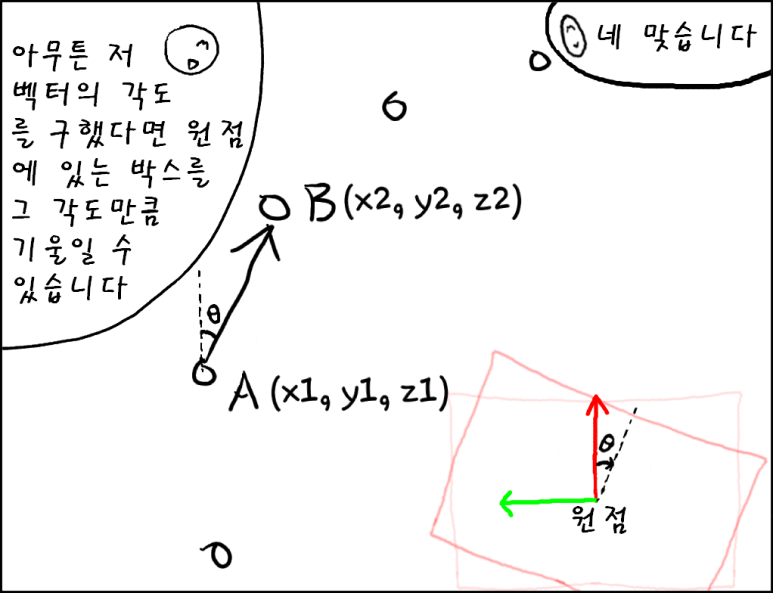 아무튼 저
벡터의 각도
를 구했다면 원점
에 있는 박스를
그 각도만큼
기울일 수
있습니다
네 맞습니다
B(x2, y2, z2)
θ
A(x1, y1, z1)
θ
원점